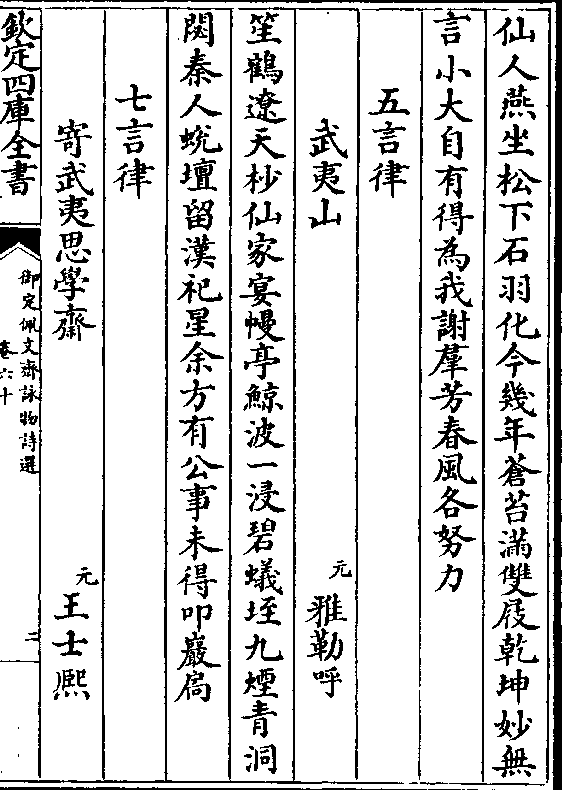 仙人燕坐松下石羽化今幾年蒼苔滿雙屐乾坤妙無
言小大自有得為我謝羣芳春風各努力
五言律
武夷山 元 雅勒呼
笙鶴遼天杪仙家宴幔亭鯨波一浸碧蟻垤九煙青洞
閟秦人蛻壇留漢祀星余方有公事未得叩巖扃
七言律
寄武夷思學齋 元 王士熙
欽定四庫全書
御定佩文齋詠物詩選
卷六十
二